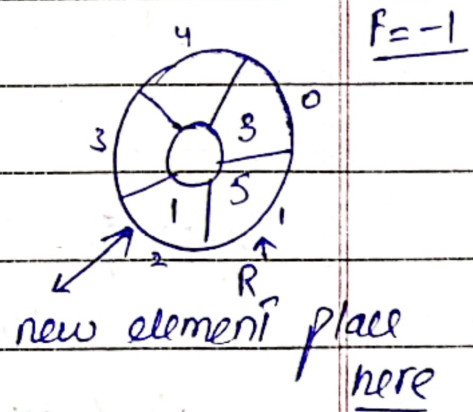 F = -1
4
0
3
8
5
1
1
2
R
new element place
here